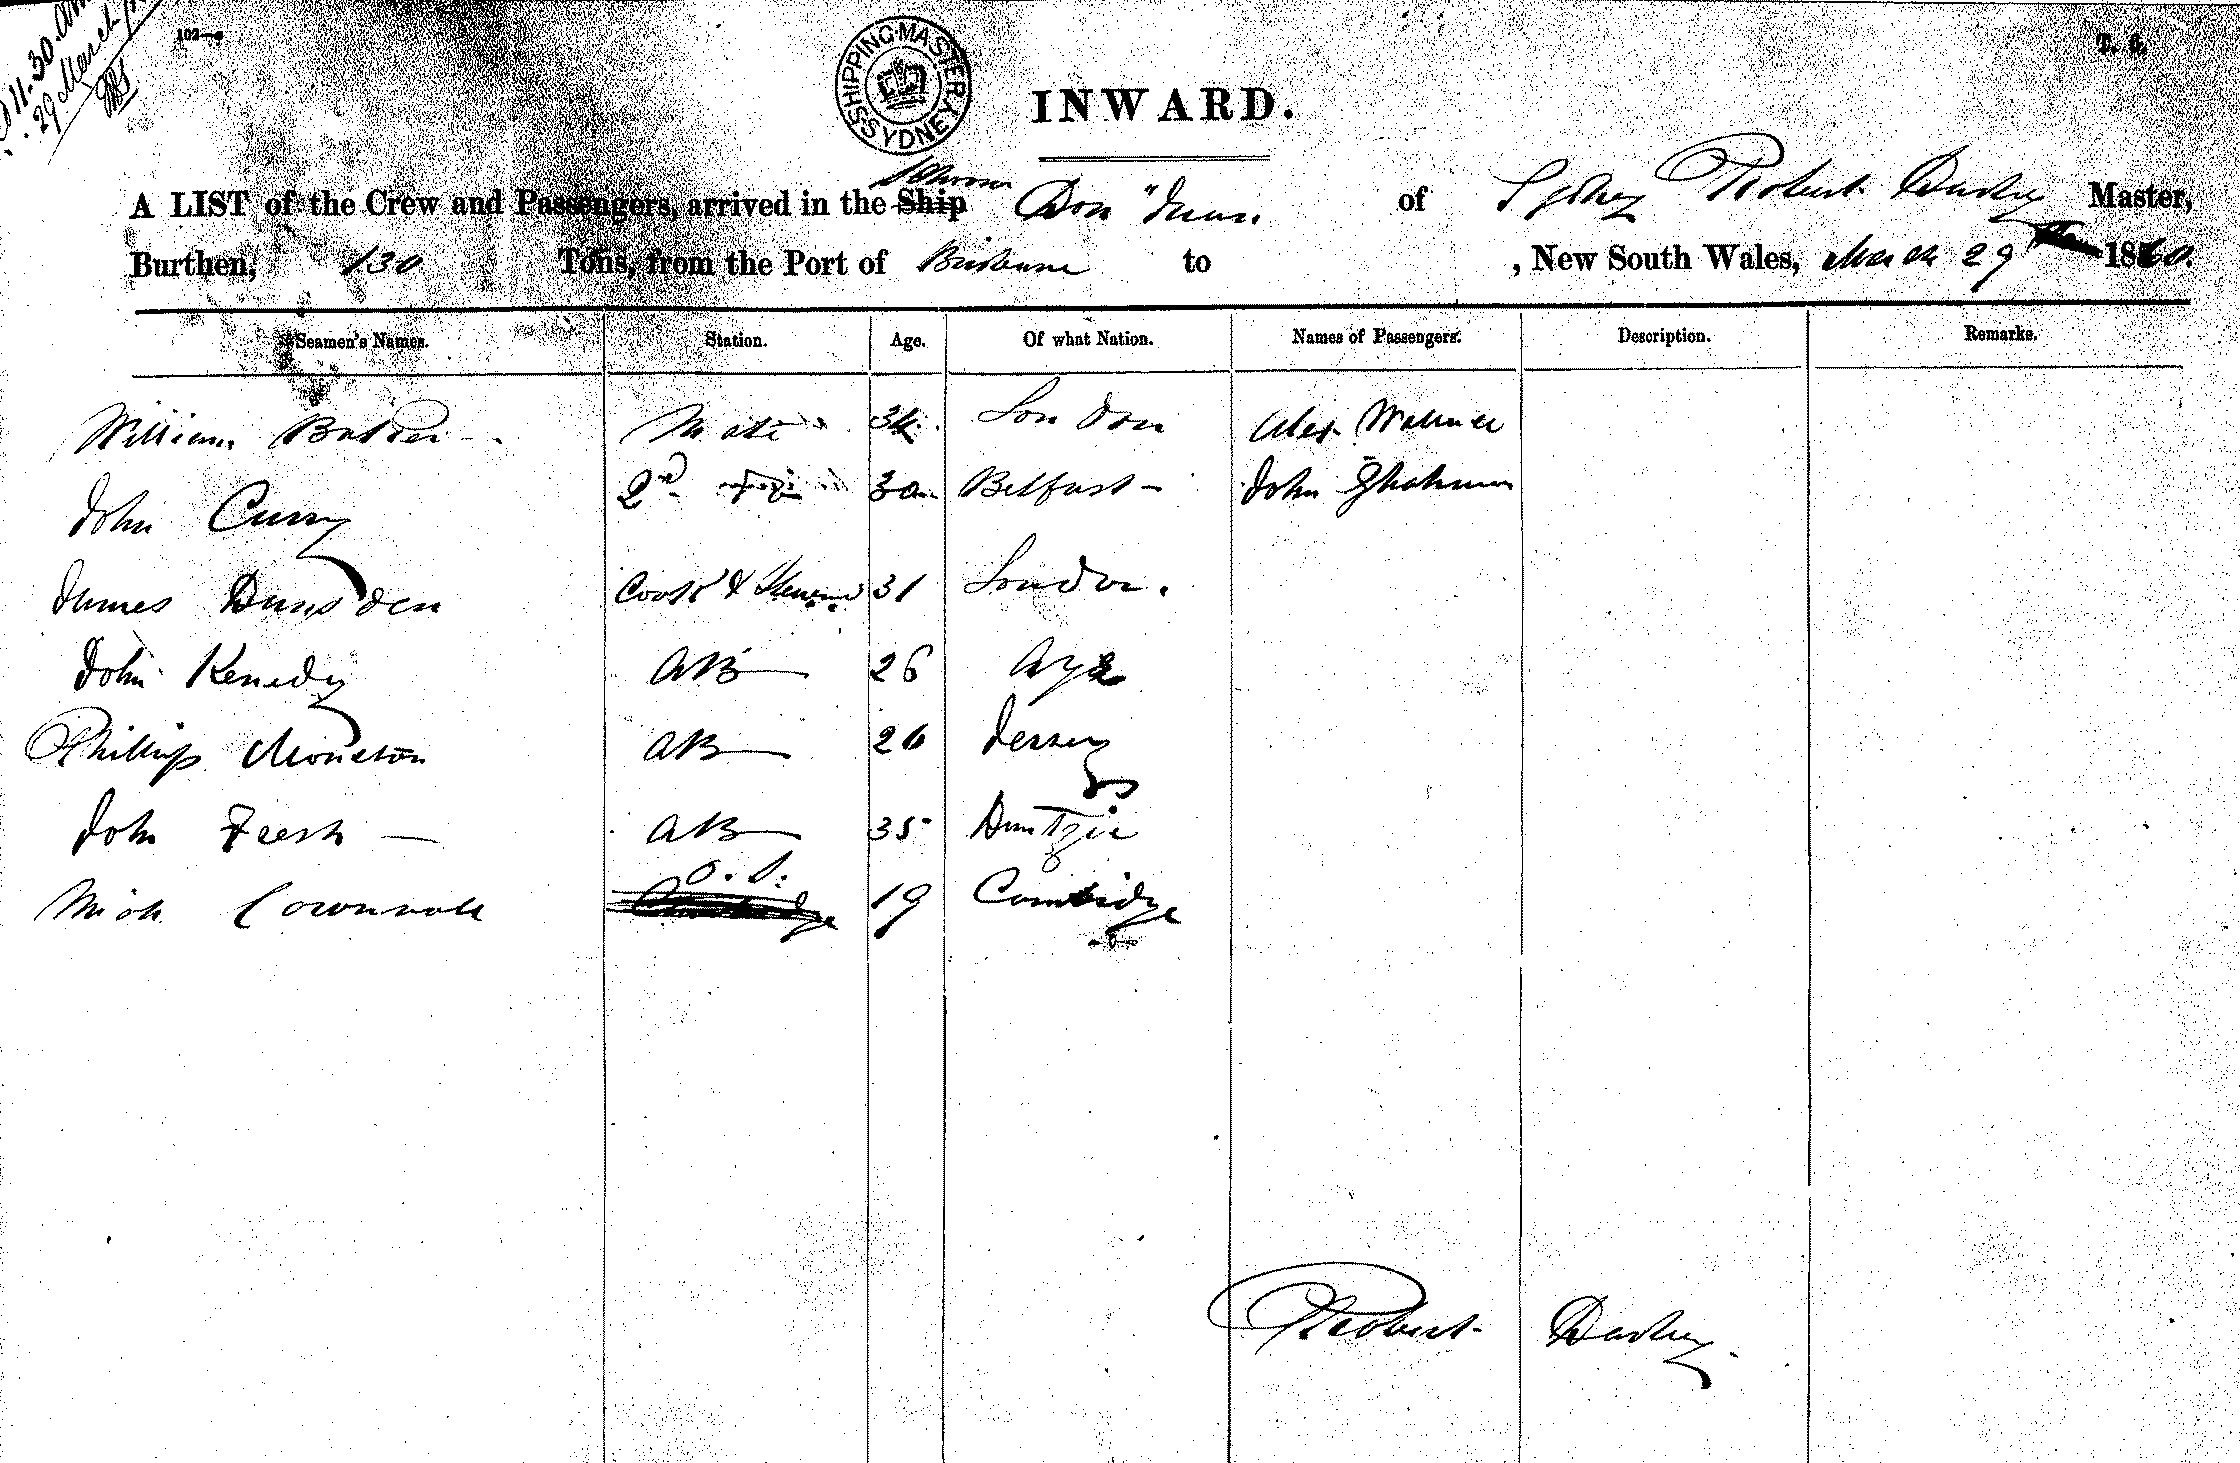 11.30 am
29 March
102—c
T. 6.
SHIPPING MASTER SYDNEY
INWARD.
A LIST of the Crew and Passengers, arrived in the Ship Schooner Don "Juan of Sydney Robert Master,
Burthen, 130 Tons, from the Port of Brisbane to , New South Wales, March 29th 1860.
Seamen's Names. Station. Age. Of what Nation. Names of Passengers. Description. Remarks.
William Mate 34 London Alex.
John Curry 2nd 30 Belfast John
James Dunsden Cook & 31 London.
John Kenedy AB 26 Ayr
Phillip AB 26 Jersey
John AB 35 Dantzic
O.S.
19 Cambridge
Robert